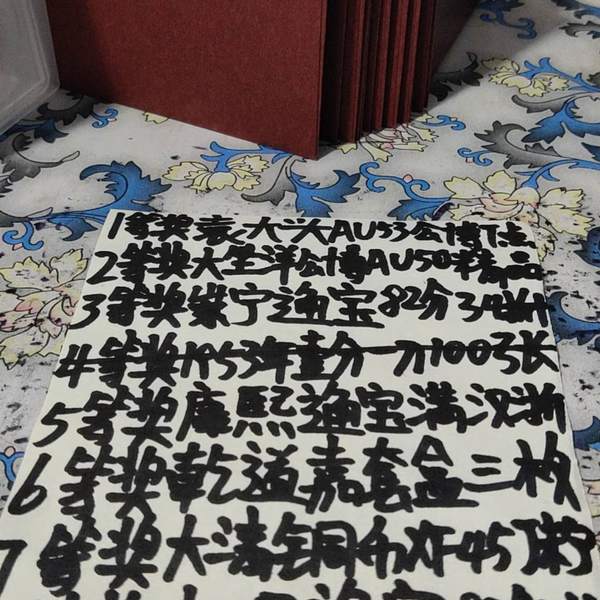 1等奖袁大头AU53公博T点
2等奖大生洋公博AU50精品
3等奖崇宁通宝82分34
4等奖1953年壹分一刀100张
5等奖康熙通宝满汉浙
6等奖乾道嘉套盒三枚
7等奖大清铜币
等奖